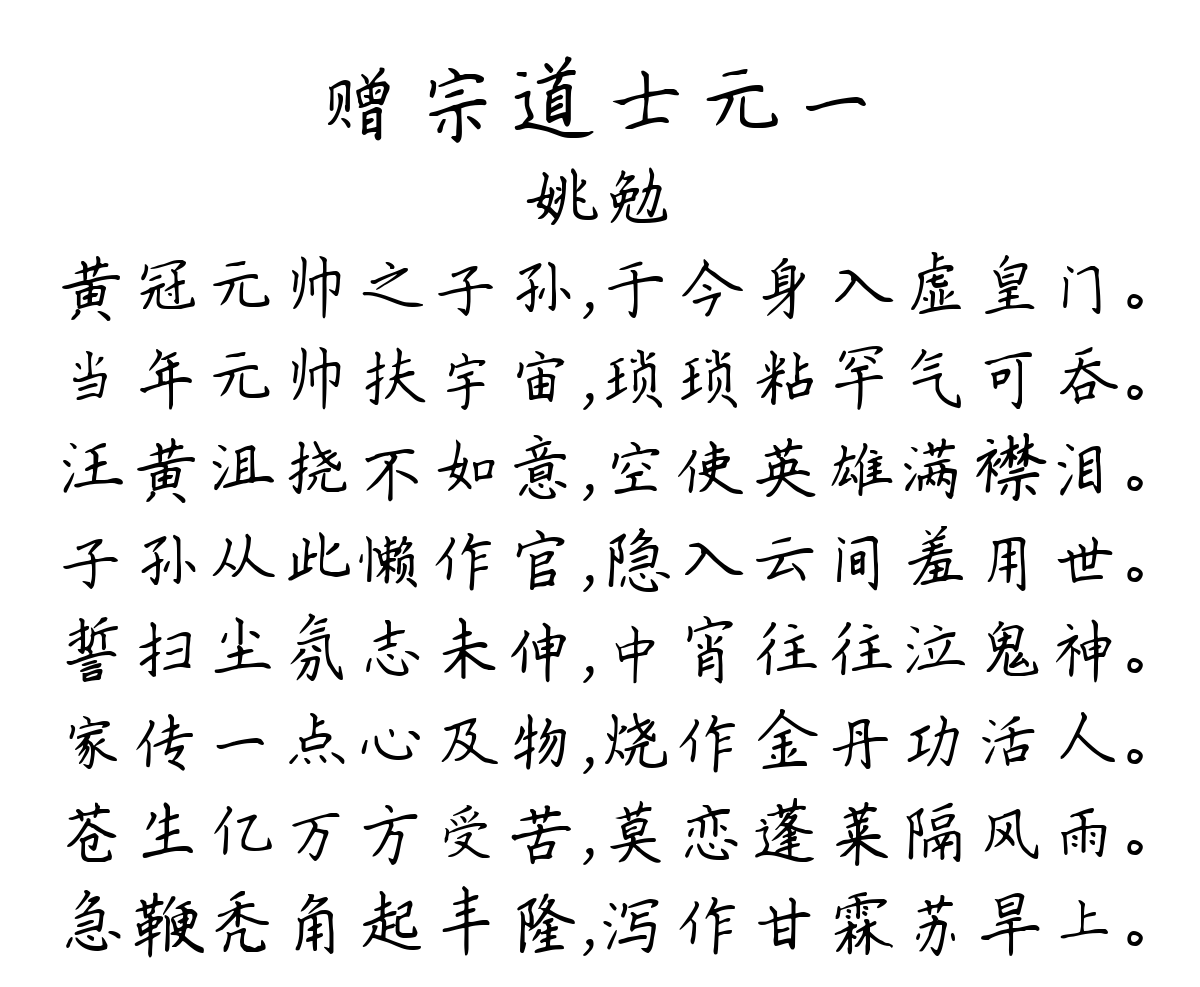 赠宗道士元一
姚勉
黄冠元帅之子孙,于今身入虚皇门。
当年元帅扶宇宙,琐琐粘罕气可吞。
汪黄沮挠不如意,空使英雄满襟泪。
子孙从此懒作官,隐入云间羞用世。
誓扫尘氛志未伸,中宵往往泣鬼神。
家传一点心及物,烧作金丹功活人。
苍生亿万方受苦,莫恋蓬莱隔风雨。
急鞭秃角起丰隆,泻作甘霖苏旱上。